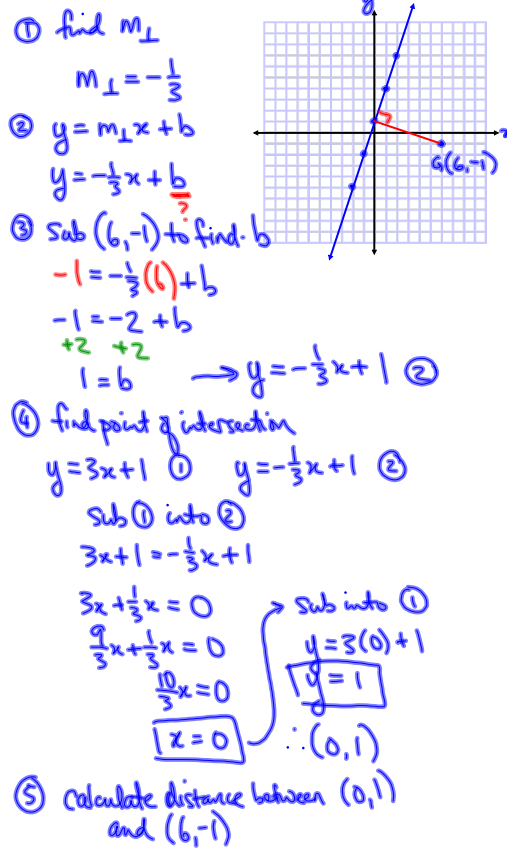 ① find m⊥
m⊥ = -1/3
② y = m⊥x + b
y = -1/3x + b
?
③ sub (6,-1) to find b
-1 = -1/3(6) + b
-1 = -2 + b
+2 +2
1 = b → y = -1/3x + 1 ②
y
x
G(6,-1)
④ find point of intersection
y = 3x + 1 ① y = -1/3x + 1 ②
sub ① into ②
3x + 1 = -1/3x + 1
3x + 1/3x = 0
9/3x + 1/3x = 0
10/3x = 0
x = 0
sub into ①
y = 3(0) + 1
y = 1
∴ (0,1)
⑤ calculate distance between (0,1)
and (6,-1)